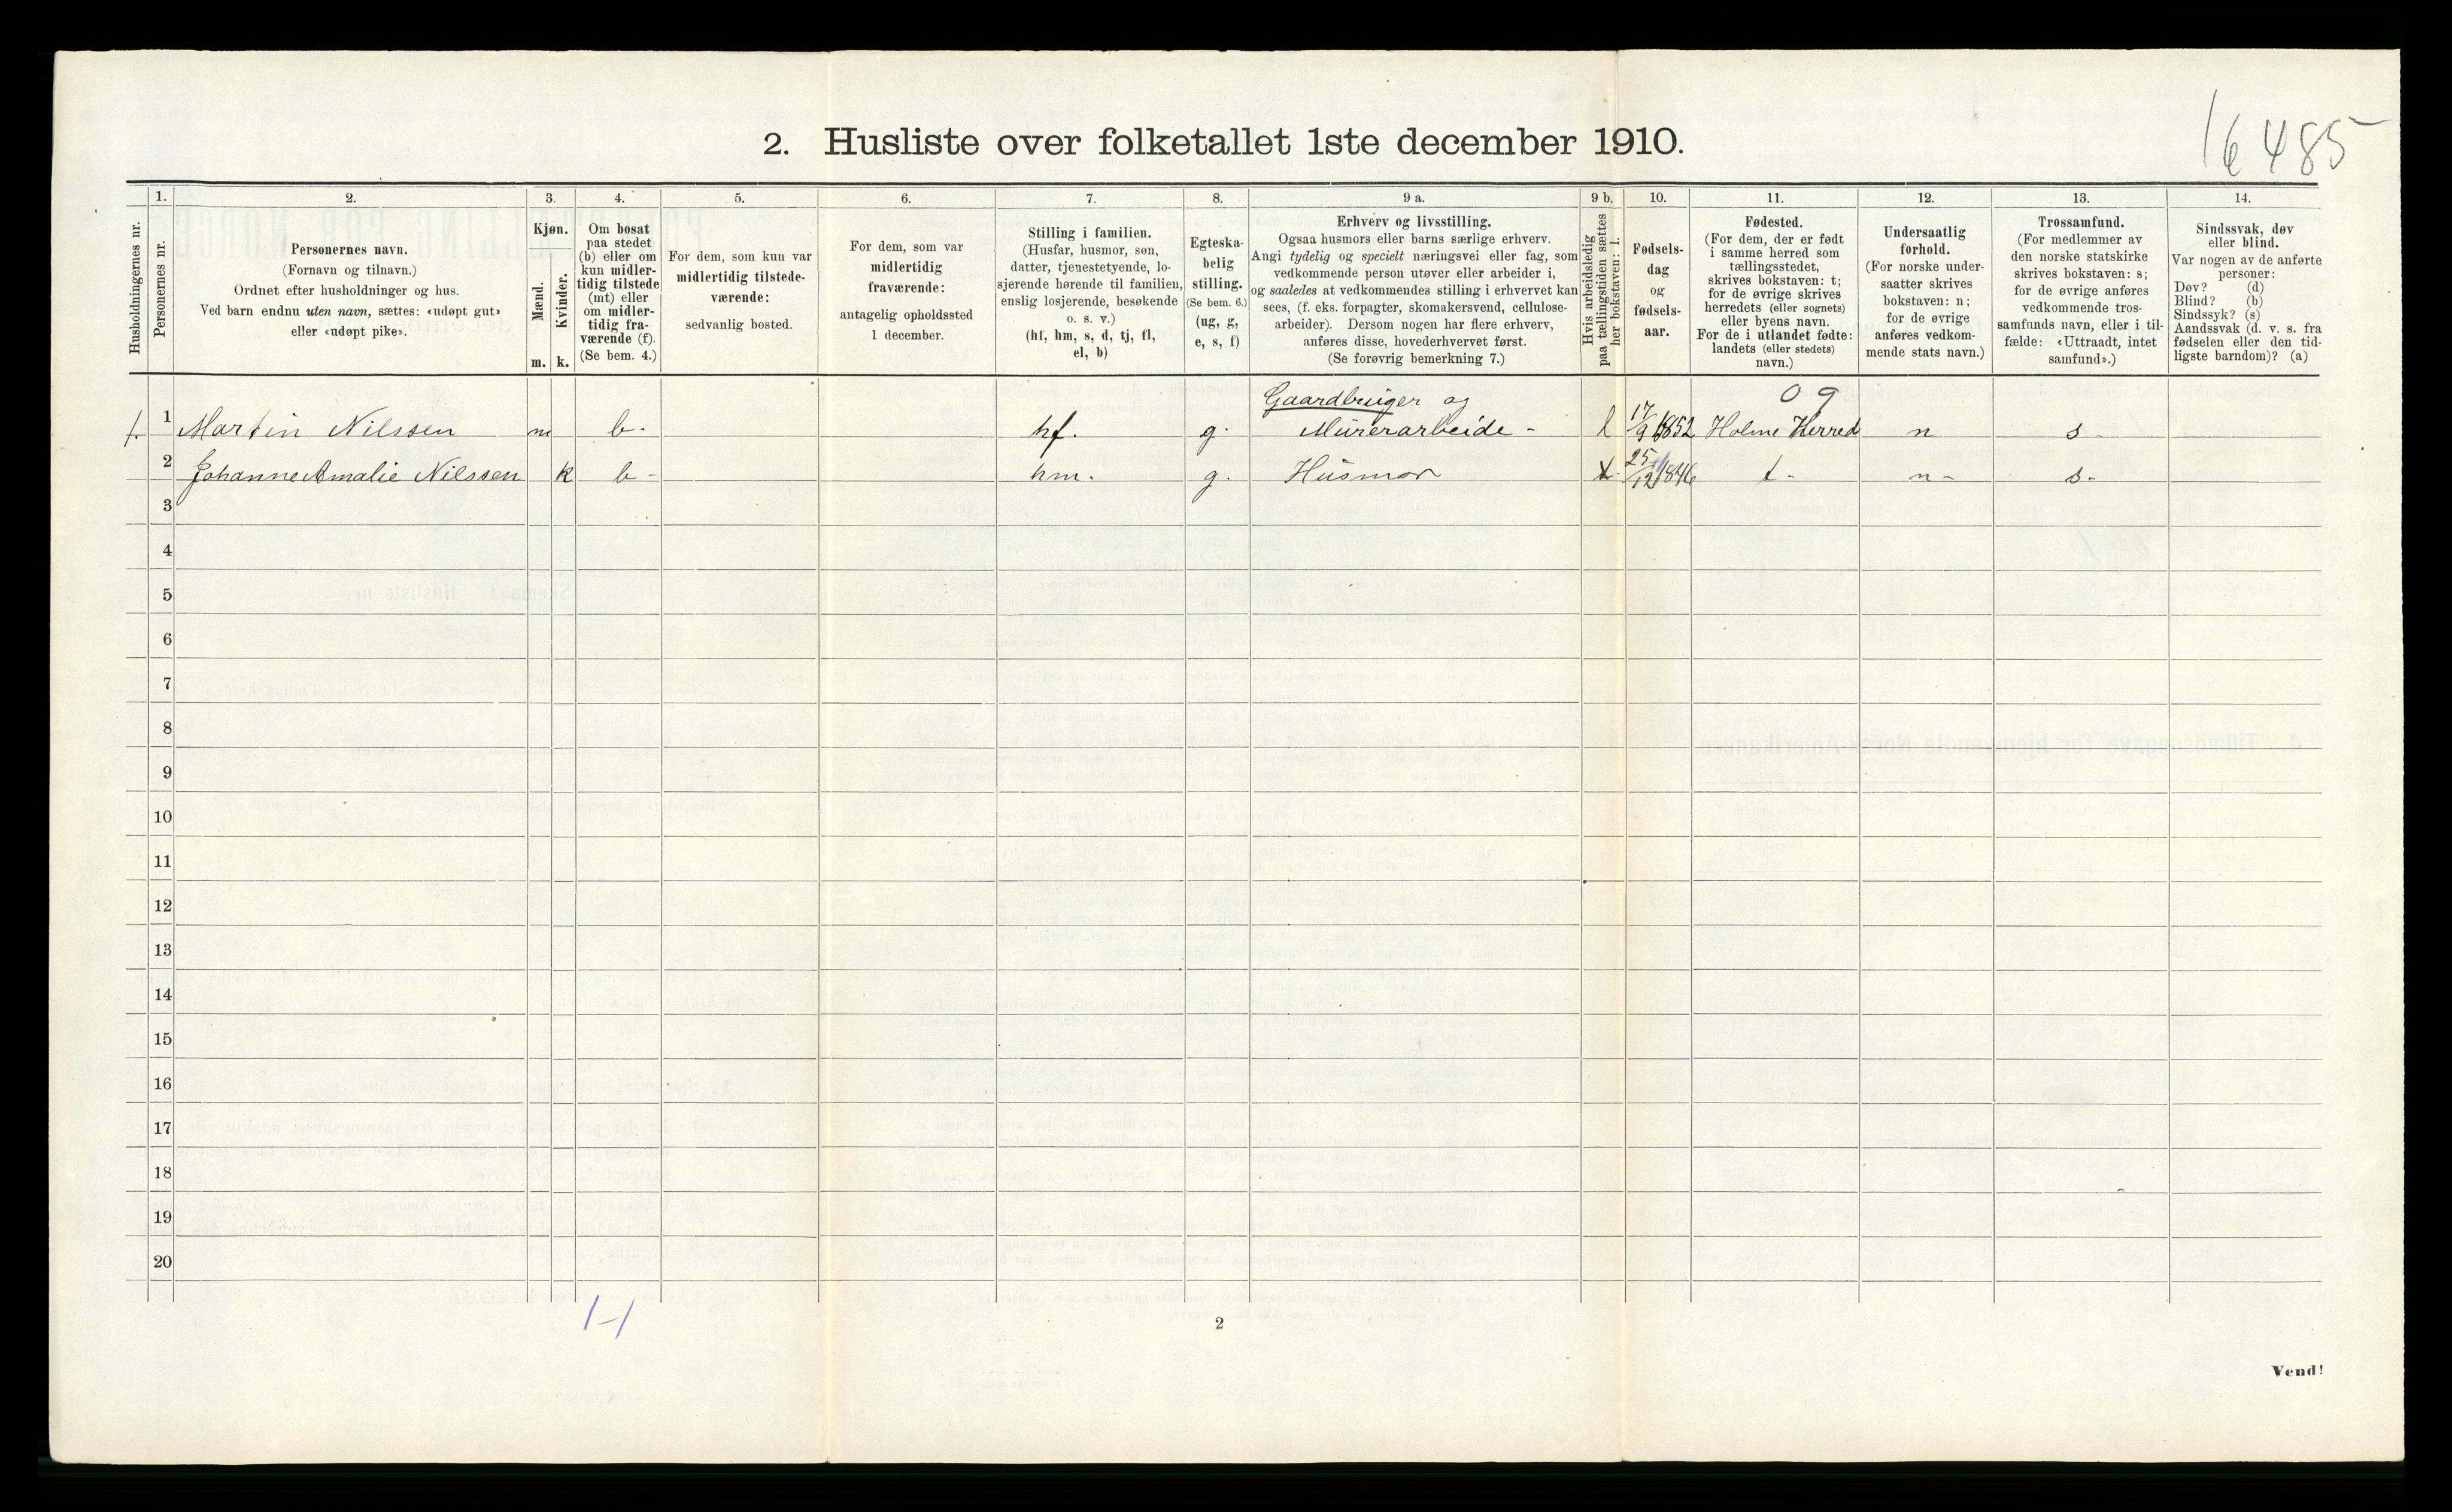 16485
2. Husliste over folketallet 1ste december 1910.
Husholdningernes nr.
1.
Personernes nr.
2.
Personernes navn.
(Fornavn og tilnavn.)
Ordnet efter husholdninger og hus.
Ved barn endnu uten navn, sættes: «udøpt gut»
eller «udøpt pike».
3.
Kjøn.
Mænd.
Kvinder.
m. k.
4.
Om bosat
paa stedet
(b) eller om
kun midler-
tidig tilstede
(mt) eller
om midler-
tidig fra-
værende (f).
(Se bem. 4.)
5.
For dem, som kun var
midlertidig tilstede-
værende:
sedvanlig bosted.
6.
For dem, som var
midlertidig
fraværende:
antagelig opholdssted
1 december.
7.
Stilling i familien.
(Husfar, husmor, søn,
datter, tjenestetyende, lo-
sjerende hørende til familien,
enslig losjerende, besøkende
o. s. v.)
(hf, hm, s, d, tj, fl,
el, b)
8.
Egteska-
belig
stilling.
(Se bem. 6.)
(ug, g,
e, s, f)
9 a.
Erhverv og livsstilling.
Ogsaa husmors eller barns særlige erhverv.
Angi tydelig og specielt næringsvei eller fag, som
vedkommende person utøver eller arbeider i,
og saaledes at vedkommendes stilling i erhvervet kan
sees, (f. eks. forpagter, skomakersvend, cellulose-
arbeider). Dersom nogen har flere erhverv,
anføres disse, hovederhvervet først.
(Se forøvrig bemerkning 7.)
9 b.
Hvis arbeidsledig
paa tællingstiden sættes
her bokstaven: l.
10.
Fødsels-
dag
og
fødsels-
aar.
11.
Fødested.
(For dem, der er født
i samme herred som
tællingsstedet,
skrives bokstaven: t;
for de øvrige skrives
herredets (eller sognets)
eller byens navn.
For de i utlandet fødte:
landets (eller stedets)
navn.)
12.
Undersaatlig
forhold.
(For norske under-
saatter skrives
bokstaven: n;
for de øvrige
anføres vedkom-
mende stats navn.)
13.
Trossamfund.
(For medlemmer av
den norske statskirke
skrives bokstaven: s;
for de øvrige anføres
vedkommende tros-
samfunds navn, eller i til-
fælde: «Uttraadt, intet
samfund».)
14.
Sindssvak, døv
eller blind.
Var nogen av de anførte
personer:
Døv? (d)
Blind? (b)
Sindssyk? (s)
Aandssvak (d. v. s. fra
fødselen eller den tid-
ligste barndom)? (a)
Gaardbruger og 09
1. 1 Martin Nilssen m b. hf. g. Murerarbeide - l 17/9 1852 Holme Herred n s
2 Johanne Amalie Nilssen k b - hm. g. Husmor 25/12 1846 t - n - s -
3
4
5
6
7
8
9
10
11
12
13
14
15
16
17
18
19
20
1-1
2
Vend!